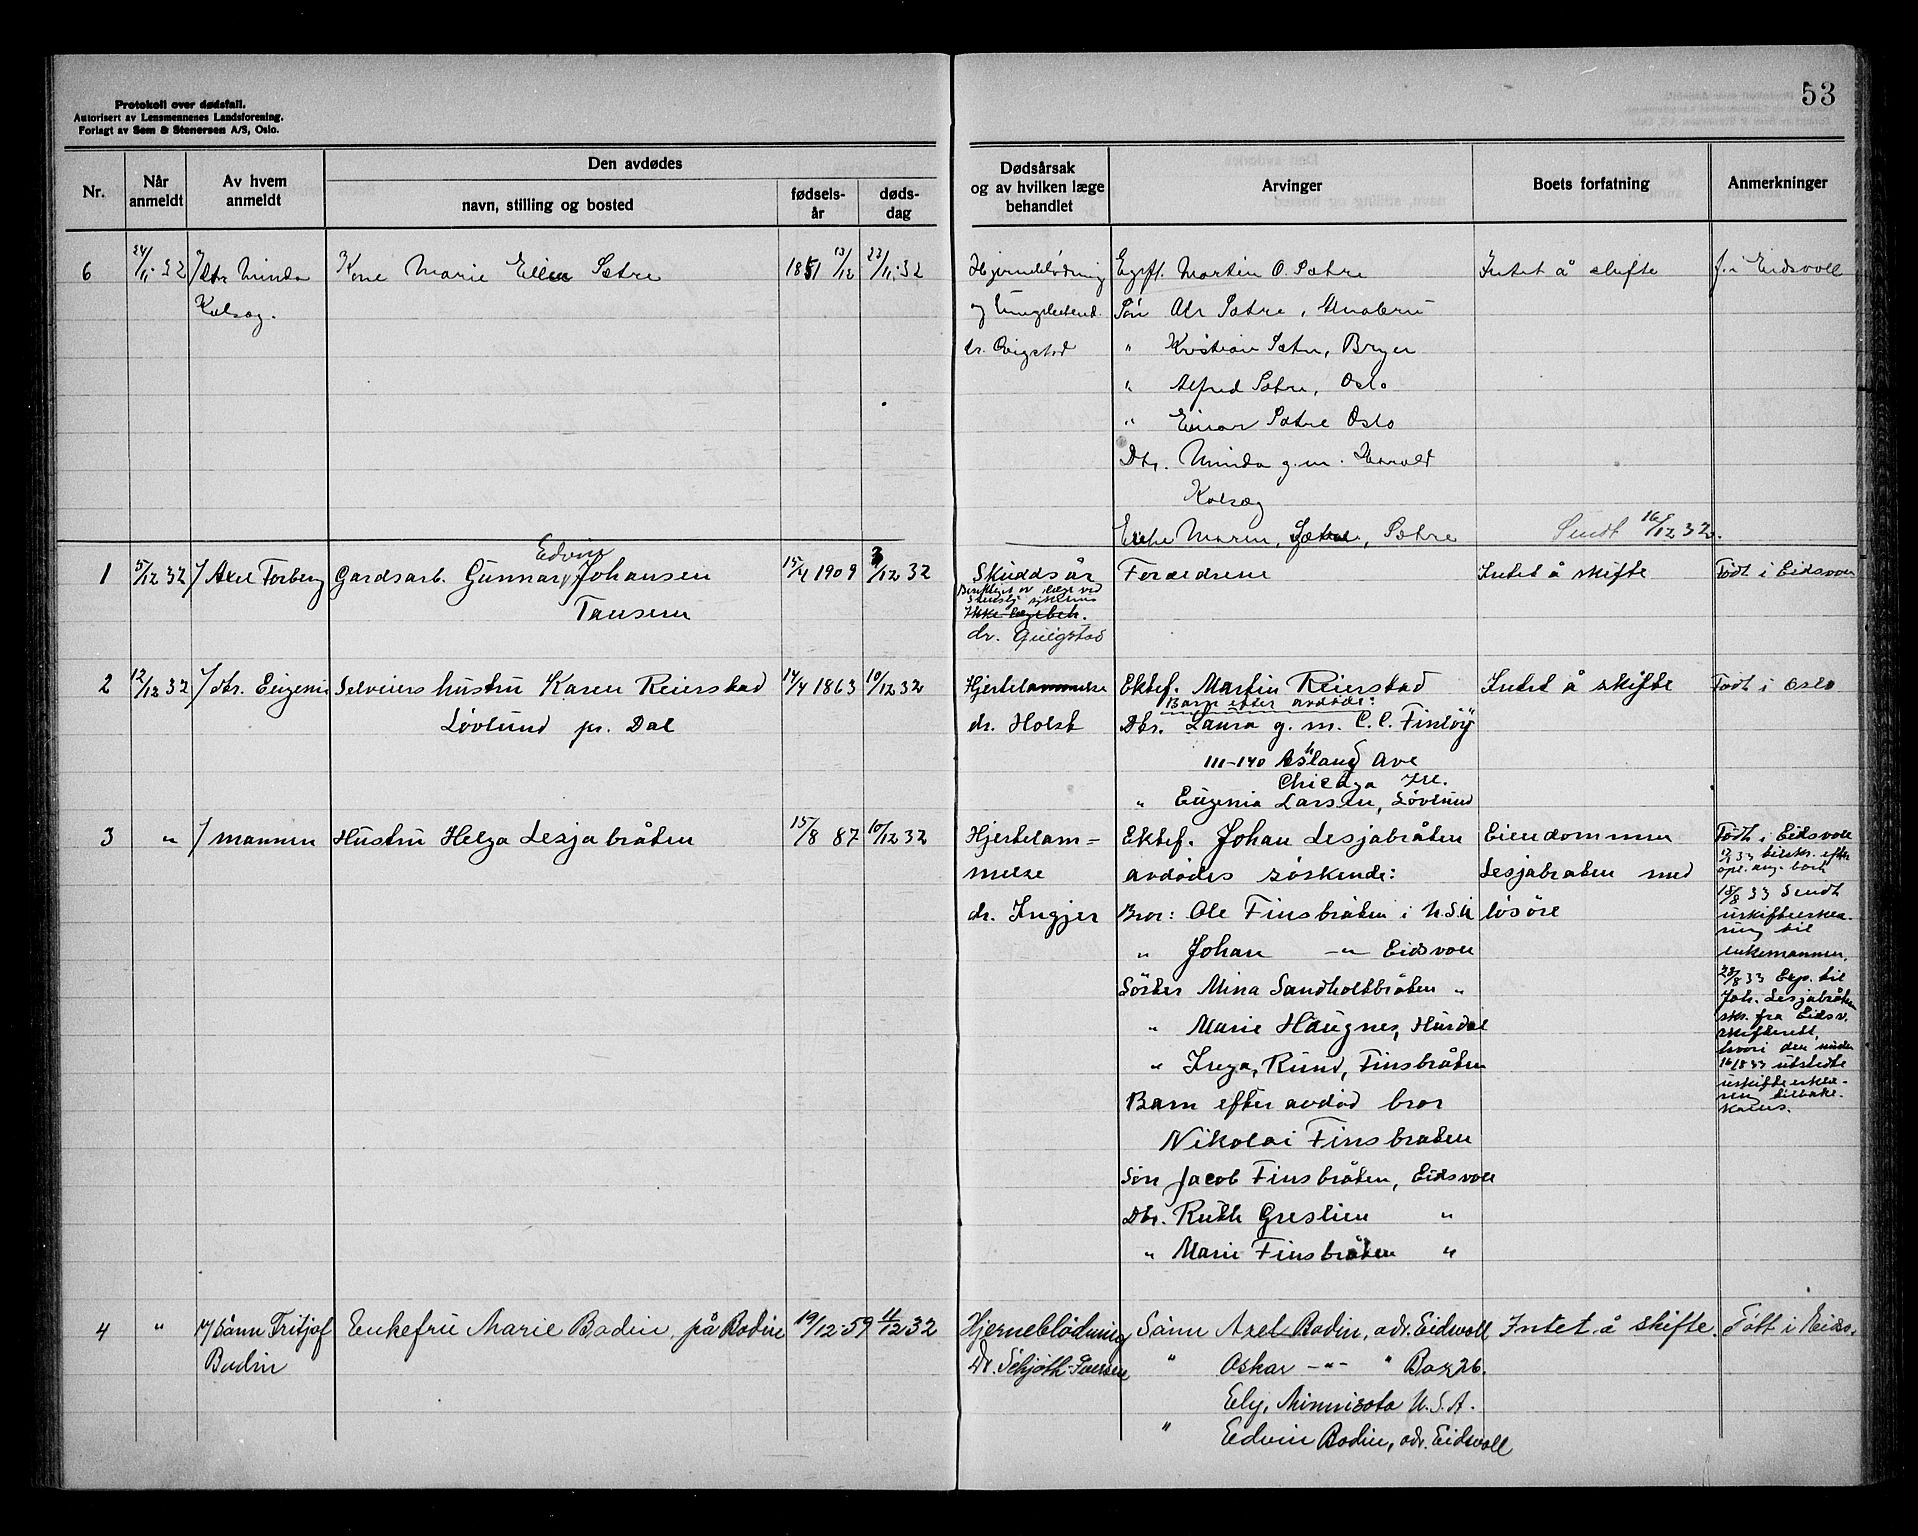 53
Protokoll over dødsfall.
Autorisert av Lensmennenes Landsforening.
Forlagt av Sem & Stenersen A/S, Oslo.
Nr.
Når anmeldt
Av hvem anmeldt
Den avdødes
navn, stilling og bosted
fødselsår
dødsdag
Dødsårsak og av hvilken læge behandlet
Arvinger
Boets forfatning
Anmerkninger
6 24/11-32 Dtr Minda Kone Marie Ellen Sætre 1851 13/12 23/11-32 Hjerneblødning Egtf. Martin O. Sætre Intet å skifte f. i Eidsvoll
Kolsæg. og Søn Ole Sætre, Alnabru
" Kristian Sætre, Bryn
" Alfred Sætre, Oslo
" Einar Sætre Oslo
Dtr. Minda g.m. Harald
Kolsæg
Maren, Sætre, Sætre Sendt 16/12 32.
Edvin
1 5/12 32 / Axel Torberg Gardsarb. Gunnar Johansen 15/4 1909 3/12 32 Skuddsår Foreldrene Intet å skifte Født i Eidsvoll
Tausen
Ikke lægebeh.
dr. Qvigstad
2 12/12 32 / dtr. Eugenia Selveiers hustru Karen Reierstad 14/4 1863 10/12 32 Hjertelammelse Ektef. Martin Reierstad Intet å skifte Født i Oslo
Barn efter avdøde:
Løvlund pr. Dal dr. Holst Dtr. Laura g. m. C. C. Finlöy
111-140 Ashland Ave
Chicago Ill.
" Eugenia Larsen, Løvlund
3 " / mannen Hustru Helga Lesjabråten 15/8 87 10/12 32 Hjertelam= Ektef. Johan Lesjabråten Eiendommen Født i Eidsvoll
melse avdødes søskende: Lesjabråten med
dr. Ingjer Bror: Ole Finsbråten i U.S.A. løsøre
" Johan -"- Eidsvoll
Söster Mina Sandholtbråten "
" Marie Haugnes, Hurdal
" Inga, Rund, Finsbråten
Barn efter avdød bror
Nikolai Finsbråten
Søn Jacob Finsbråten, Eidsvoll
Dtr. Ruth Greslien "
" Marie Finsbråten "
18/8 33 Sendt
uskifteerklæ-
ring til
enkemannen.
23/8 33 Exp. til
Joh. Lesjabråten
skr. fra Eidsv.
skifterett,
hvori den under
16/8 33 utstedte
uskifteerklæ-
ring tilbake-
kalles.
4 " / Sønn Fritjof Enkefru Marie Bodin, på Bodin 19/12-59 11/12 32 Hjerneblödning Sønn Axel Bodin, adr. Eidsvoll Intet å skifte. Født i Eidsv.
Bodin Dr. Schjøth-Iversen " Oskar -"- " Box 26.
Ely, Minnisota U.S.A.
" Edvin Bodin, adr. Eidsvoll